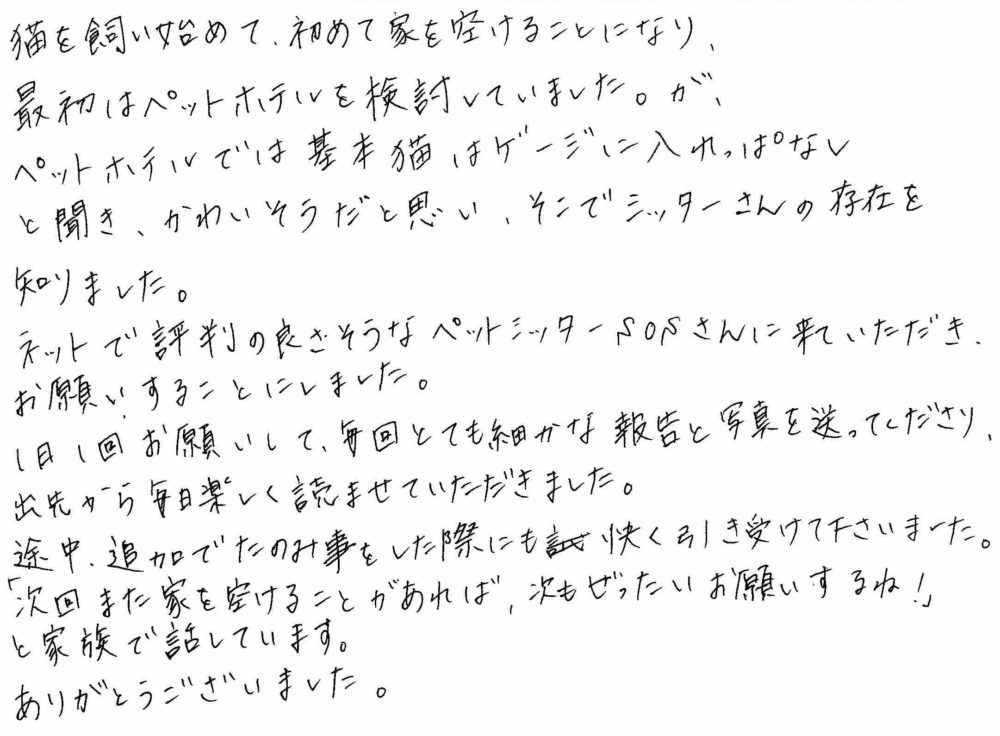 猫を飼い始めて、初めて家を空けることになり、
最初はペットホテルを検討していました。が、
ペットホテルでは基本猫はゲージに入れっぱなし
と聞き、かわいそうだと思い、そこでシッターさんの存在を
知りました。
ネットで評判の良さそうなペットシッターSOSさんに来ていただき、
お願いすることにしました。
1日1回お願いして、毎回とても細かな報告と写真を送ってくださり、
出先から毎日楽しく読ませていただきました。
途中、追加でたのみ事をした際にも快く引き受けて下さいました。
「次回また家を空けることがあれば、次もぜったいお願いするね!」
と家族で話しています。
ありがとうございました。